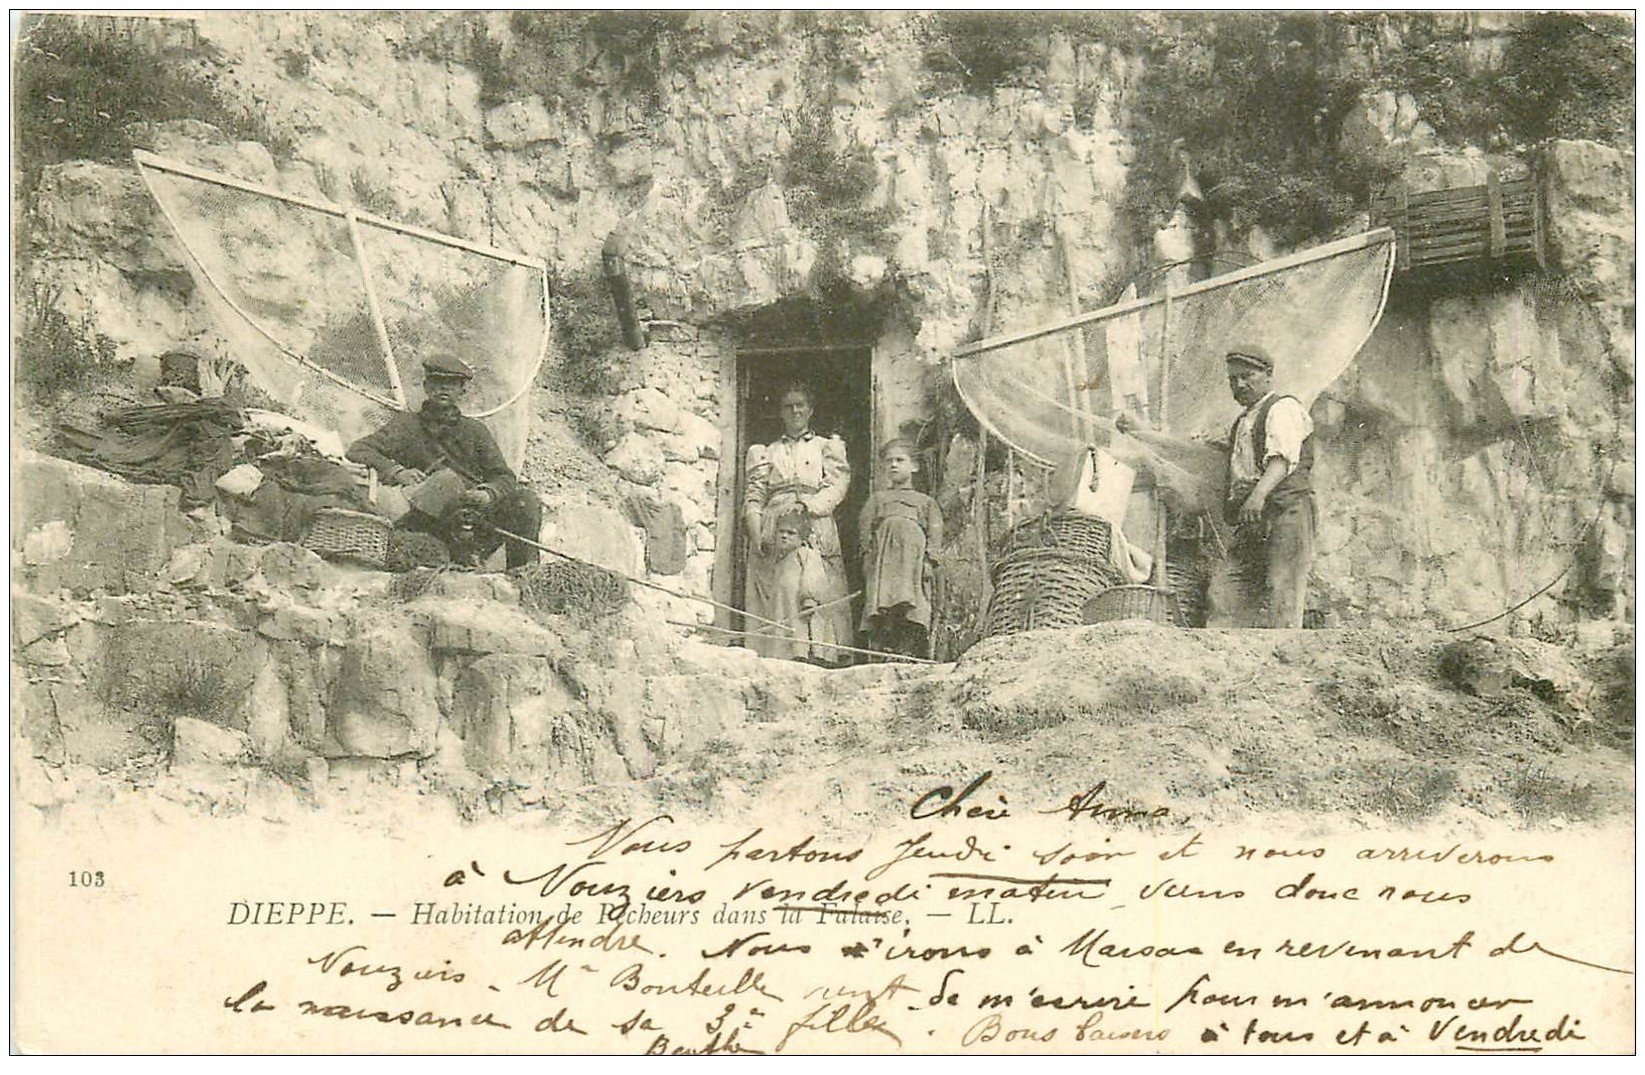 Chère Anna,
Nous partons Jeudi soir et nous arriverons
à Nouziers vendredi matin, viens donc nous
103
DIEPPE. — Habitation de Pêcheurs dans la Falaise. — LL.
attendre. Nous n'irons à en revenant de
Nouziers. Me Bouteille vient de m'écrire pour m'annoncer
la naissance de sa 3e fille. Bons baisers à tous et à Vendredi
Berthe